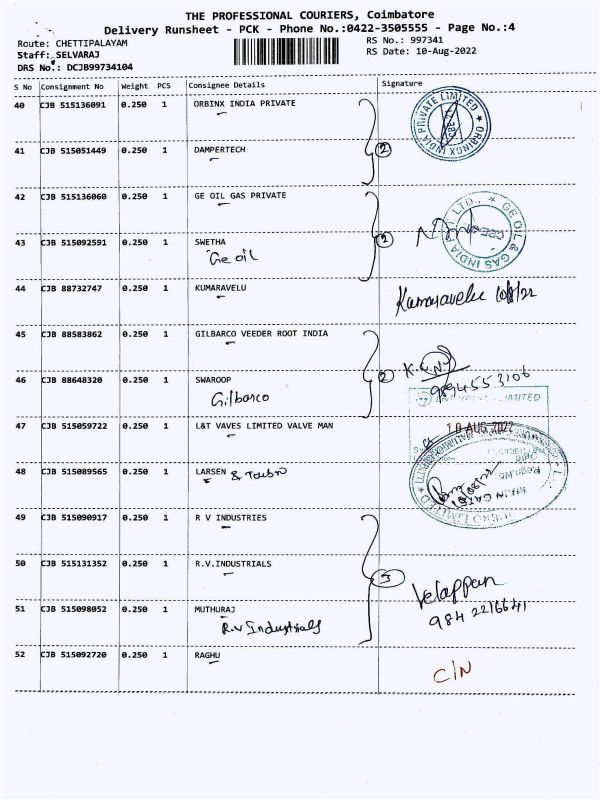 THE PROFESSIONAL COURIERS, Coimbatore
Delivery Runsheet - PCK - Phone No.:0422-3505555 - Page No.:4
Route: CHETTIPALAYAM
RS No.: 997341
Staff: SELVARAJ
RS Date: 10-Aug-2022
DRS No.: DCJB99734104
S No Consignment No Weight PCS Consignee Details Signature
40 CJB 515136091 0.250 1 ORBINX INDIA PRIVATE
ORBINOX INDIA PRIVATE LIMITED
41 CJB 515051449 0.250 1 DAMPERTECH
2
42 CJB 515136060 0.250 1 GE OIL GAS PRIVATE
GE OIL & GAS INDIA LTD.
43 CJB 515092591 0.250 1 SWETHA
2
Ge oil
44 CJB 88732747 0.250 1 KUMARAVELU
Kumaravelu 10/8/22
45 CJB 88583862 0.250 1 GILBARCO VEEDER ROOT INDIA
46 CJB 88648320 0.250 1 SWAROOP
2
9894553106
Gilbarco
LIMITED
47 CJB 515059722 0.250 1 L&T VAVES LIMITED VALVE MAN
10 AUG 2022
48 CJB 515089565 0.250 1 LARSEN & Toubro
MAIN GATE
49 CJB 515090917 0.250 1 R V INDUSTRIES
50 CJB 515131352 0.250 1 R.V.INDUSTRIALS
3
Velappan
51 CJB 515098052 0.250 1 MUTHURAJ
984 2216641
R.V Industrials
52 CJB 515092720 0.250 1 RAGHU
C/N